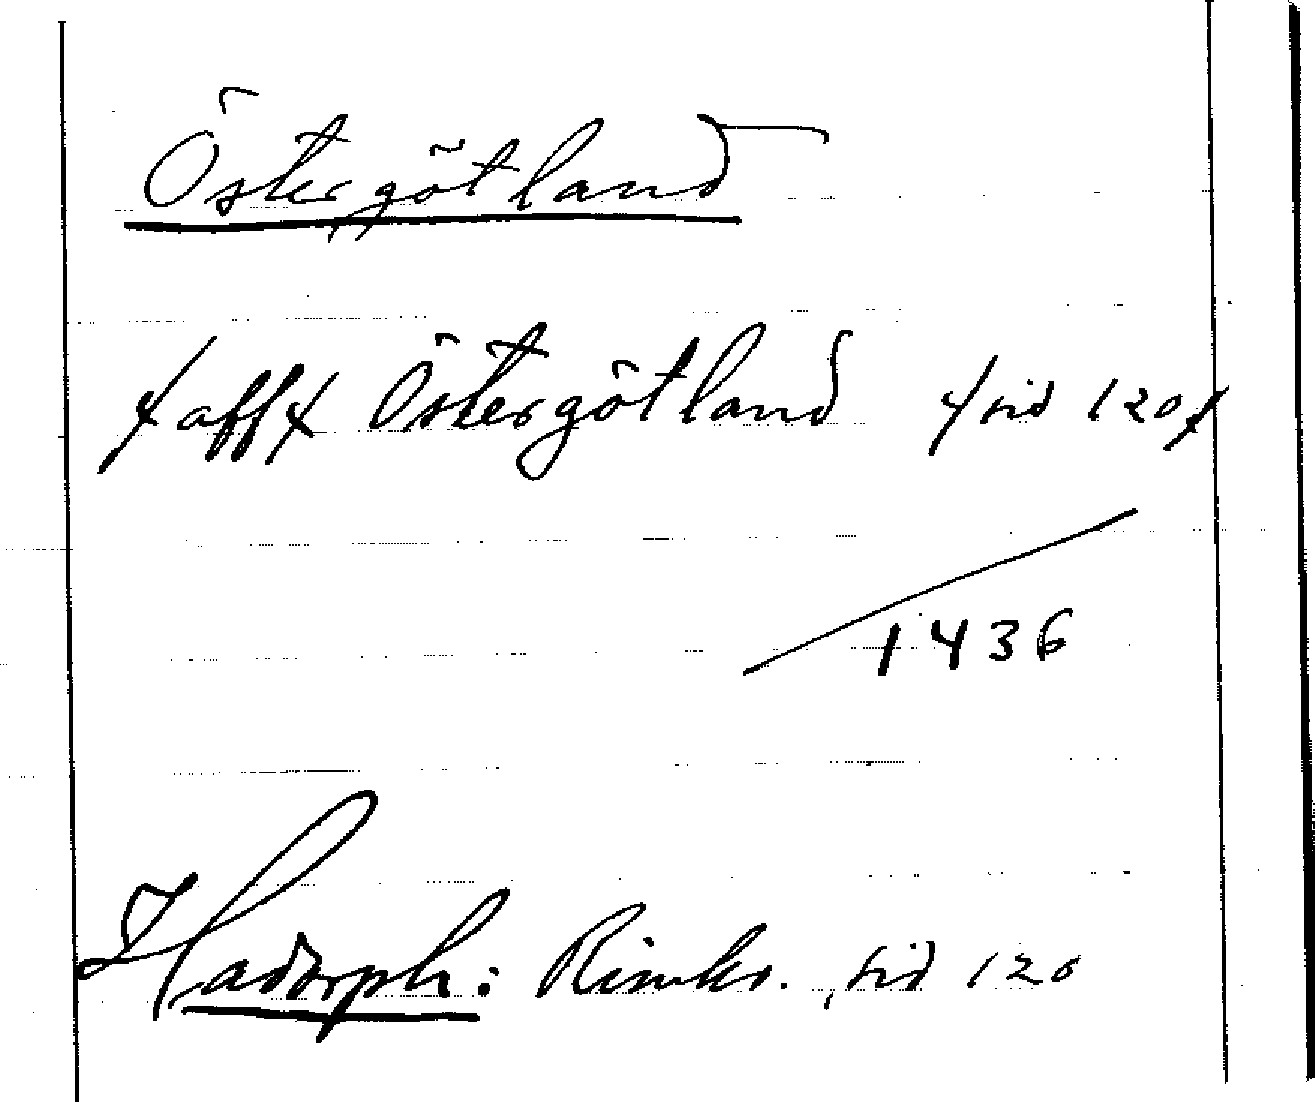 Östergötland
/aff/ Östergötland /sid 120/
1436
Hadorph: Rimkr. , sid 120